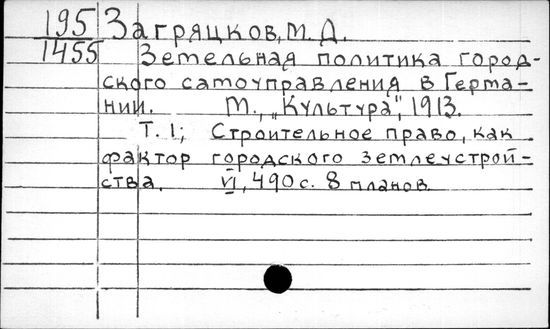 195 Загряцков, М. Д.
1455 Земельная политика город-
ского самоуправления в Герма-
нии. М., „Культура", 1913.
Т. 1; Строительное право, как
фактор городского землеустрой-
ства. VI, 490 с. 8 планов.